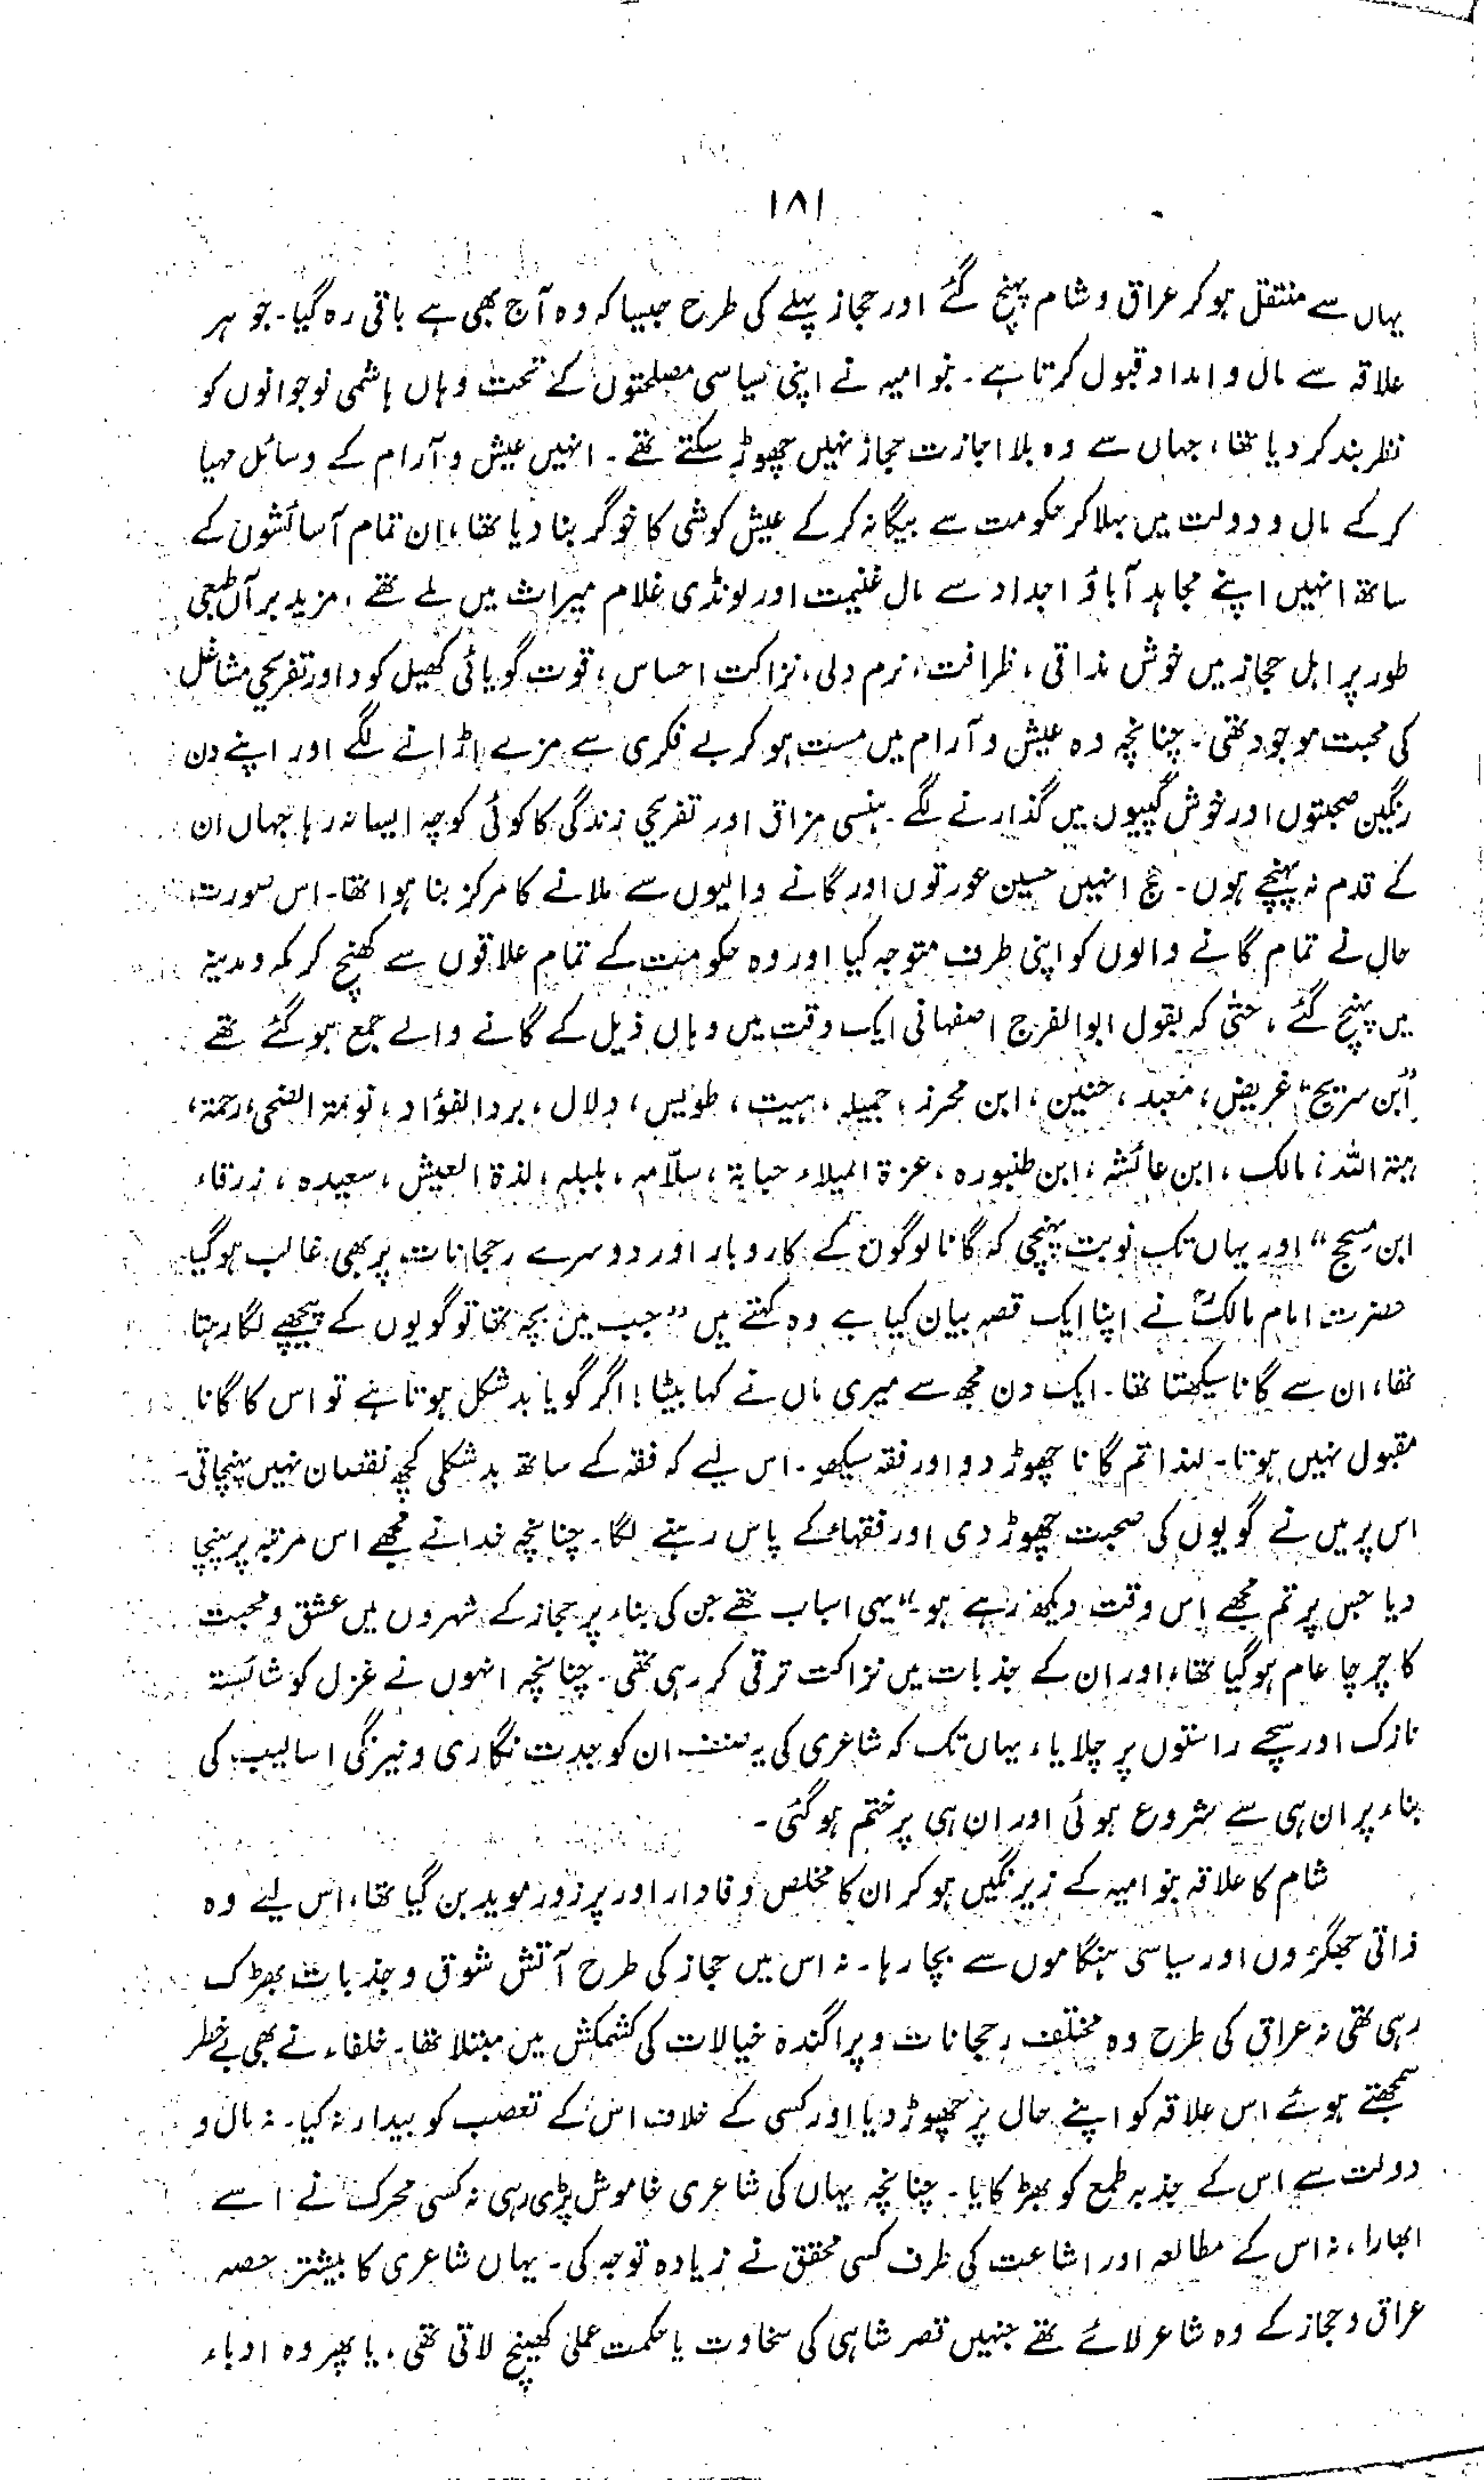 ۱۸۱
یہاں سے منتقل ہو کر عراق و شام پہنچ گئے اور حجاز پہلے کی طرح جیسا کہ وہ آج بھی ہے باقی رہ گیا۔ جو ہر
علاقہ سے مال و امداد قبول کرتا ہے۔ بنو امیہ نے اپنی سیاسی مصلحتوں کے تحت وہاں ہاشمی نوجوانوں کو
نظر بند کر دیا تھا، جہاں سے وہ بلا اجازت حجاز نہیں چھوڑ سکتے تھے۔ انہیں عیش و آرام کے وسائل مہیا
کر کے مال و دولت میں بہلا کر حکومت سے بیگانہ کر کے عیش کوشی کا خوگر بنا دیا تھا، ان تمام آسائشوں کے
ساتھ انہیں اپنے مجاہد آباؤ اجداد سے مال غنیمت اور لونڈی غلام میراث میں ملے تھے، مزید برآں طبعی
طور پر اہل حجاز میں خوش مذاقی، ظرافت، نرم دلی، نزاکت احساس، قوت گویائی کھیل کود اور تفریحی مشاغل
کی محبت موجود تھی۔ چنانچہ وہ عیش و آرام میں مست ہو کر بے فکری سے مزے اڑانے لگے اور اپنے دن
رنگین صحبتوں اور خوش گپیوں میں گذارنے لگے۔ ہنسی مزاق اور تفریحی زندگی کا کوئی کوچہ ایسا نہ رہا جہاں ان
کے قدم نہ پہنچے ہوں۔ حج انہیں حسین عورتوں اور گانے والیوں سے ملانے کا مرکز بنا ہوا تھا۔ اس صورت
حال نے تمام گانے والوں کو اپنی طرف متوجہ کیا اور وہ حکومت کے تمام علاقوں سے کھنچ کر مکہ و مدینہ
میں پہنچ گئے، حتیٰ کہ بقول ابوالفرج اصفہانی ایک وقت میں وہاں ذیل کے گانے والے جمع ہو گئے تھے
"ابن سریج، غریض، معبد، حنین، ابن محرز، جمیلہ، ہیت، طویس، دلال، برد الفؤاد، نومۃ الضحی، رحمۃ،
ہبۃ اللہ، مالک، ابن عائشہ، ابن طنبورہ، عزۃ المیلاء حبابۃ، سلّامہ، بلبلہ، لذۃ العیش، سعیدہ، زرقاء
ابن مسجح" اور یہاں تک نوبت پہنچی کہ گانا لوگوں کے کاروبار اور دوسرے رجحانات پر بھی غالب ہو گیا
حضرت امام مالکؒ نے اپنا ایک قصہ بیان کیا ہے وہ کہتے ہیں "جب میں بچہ تھا تو گویوں کے پیچھے لگا رہتا
تھا، ان سے گانا سیکھتا تھا۔ ایک دن مجھ سے میری ماں نے کہا بیٹا! اگر گویا بد شکل ہوتا ہے تو اس کا گانا
مقبول نہیں ہوتا۔ لہذا تم گانا چھوڑ دو اور فقہ سیکھو۔ اس لیے کہ فقہ کے ساتھ بد شکلی کچھ نقصان نہیں پہنچاتی۔
اس پر میں نے گویوں کی صحبت چھوڑ دی اور فقہاء کے پاس رہنے لگا۔ چنانچہ خدا نے مجھے اس مرتبہ پر پہنچا
دیا جس پر تم مجھے اس وقت دیکھ رہے ہو۔" یہی اسباب تھے جن کی بناء پر حجاز کے شہروں میں عشق و محبت
کا چرچا عام ہو گیا تھا، اور ان کے جذبات میں نزاکت ترقی کر رہی تھی۔ چنانچہ انہوں نے غزل کو شائستہ
نازک اور سچے راستوں پر چلایا، یہاں تک کہ شاعری کی یہ صنف ان کو جدت نگاری و نیرنگی اسالیب کی
بناء پر ان ہی سے شروع ہوئی اور ان ہی پر ختم ہو گئی۔
شام کا علاقہ بنو امیہ کے زیر نگیں ہو کر ان کا مخلص وفادار اور پر زور موید بن گیا تھا، اس لیے وہ
ذاتی جھگڑوں اور سیاسی ہنگاموں سے بچا رہا۔ نہ اس میں حجاز کی طرح آتش شوق و جذبات بھڑک
رہی تھی نہ عراق کی طرح وہ مختلف رجحانات و پراگندہ خیالات کی کشمکش میں مبتلا تھا۔ خلفاء نے بھی بے خطر
سمجھتے ہوئے اس علاقہ کو اپنے حال پر چھوڑ دیا اور کسی کے خلاف اس کے تعصب کو بیدار نہ کیا۔ نہ مال و
دولت سے اس کے جذبہ طمع کو بھڑکایا۔ چنانچہ یہاں کی شاعری خاموش پڑی رہی نہ کسی محرک نے اسے
ابھارا، نہ اس کے مطالعہ اور اشاعت کی طرف کسی محقق نے زیادہ توجہ کی۔ یہاں شاعری کا بیشتر حصہ
عراق و حجاز کے وہ شاعر لائے تھے جنہیں قصر شاہی کی سخاوت یا حکمت عملی کھینچ لاتی تھی، یا پھر وہ ادباء